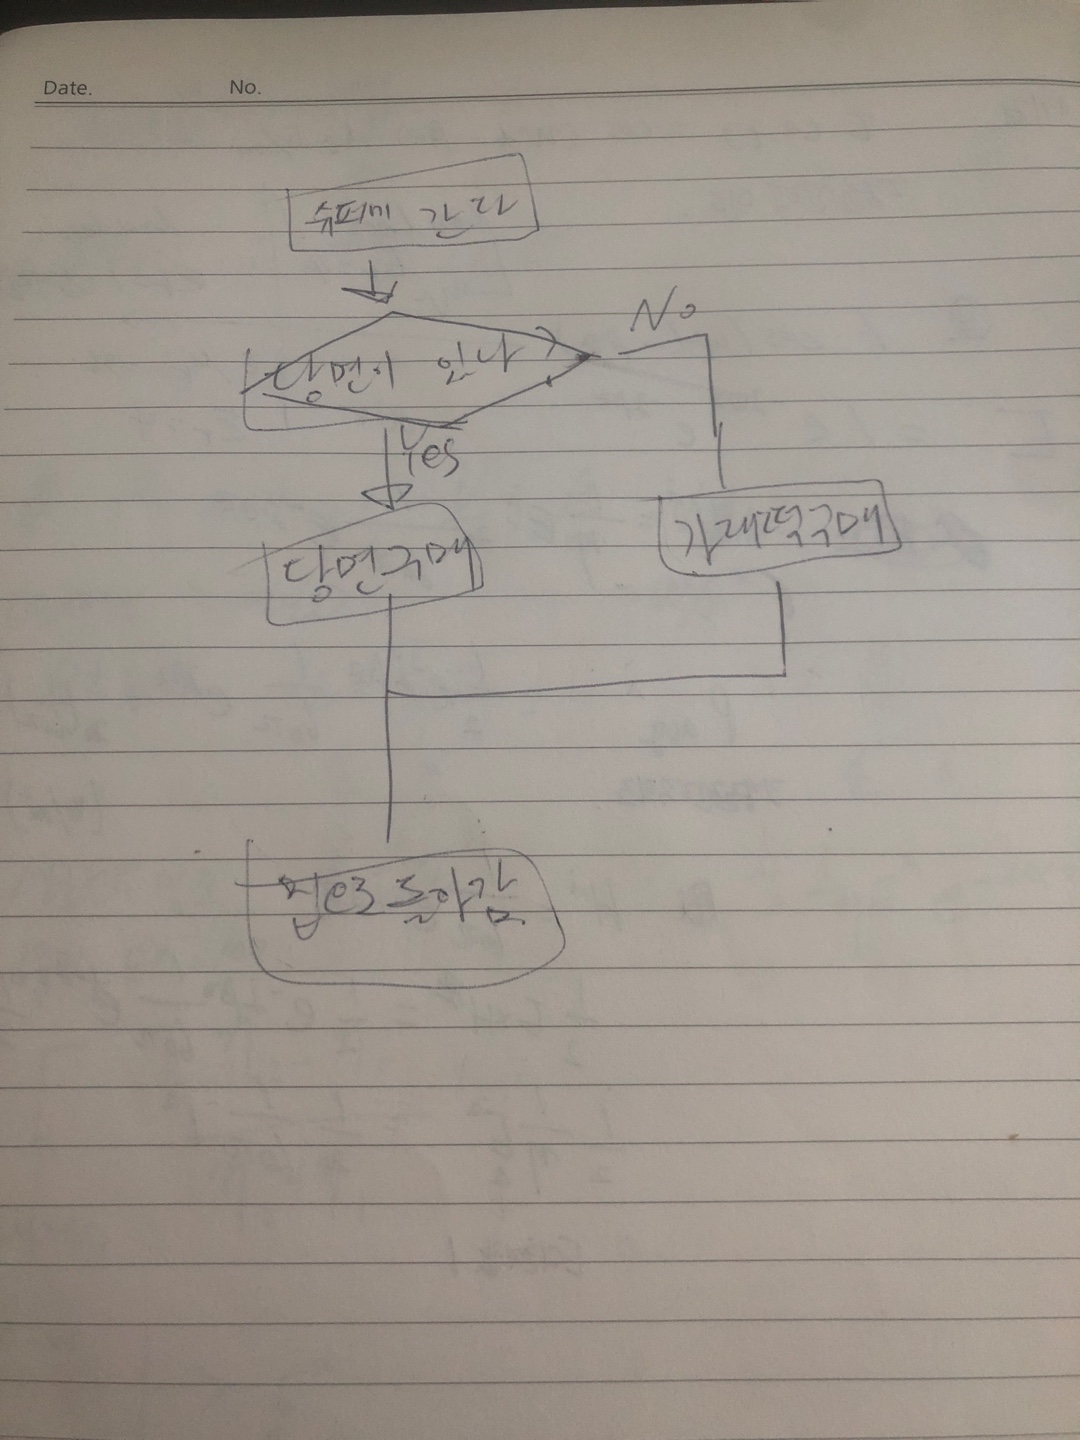 Date. No.
슈퍼에 간다
당면이 있나?
No
Yes
당면구매
가래떡구매
집으로 돌아감